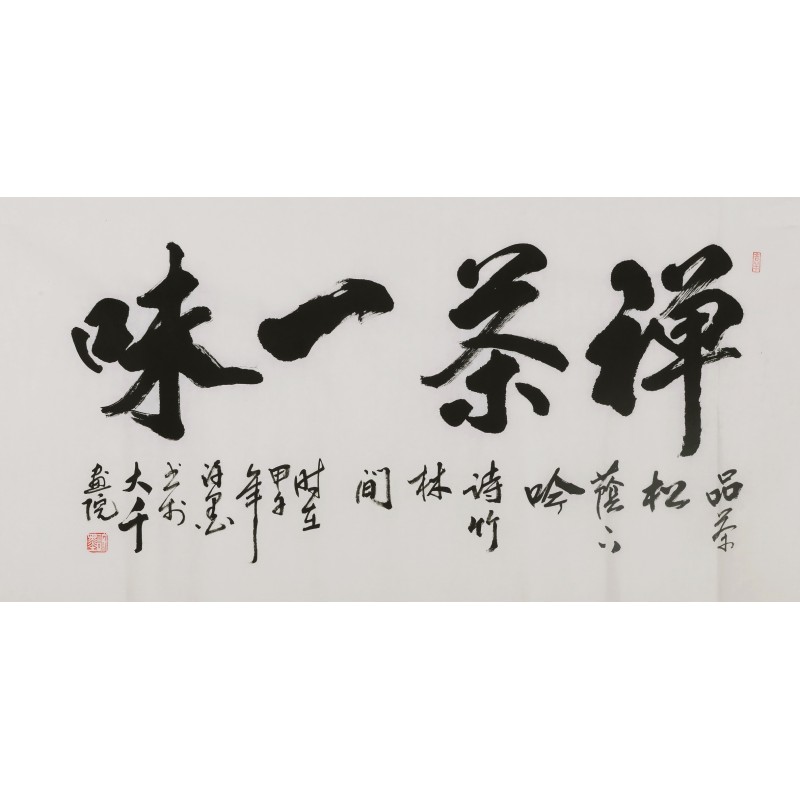 禅茶一味
品茶
松
蔭下
吟
诗竹
林
间
时在
甲午
年
书於
大千
畫院